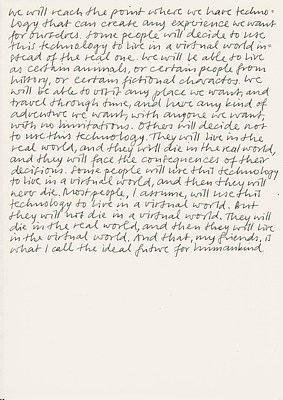 we will reach the point where we have techno-
logy that can create any experience we want
for ourselves. Some people will decide to use
this technology to live in a virtual world in-
stead of the real one. We will be able to live
as certain animals, or certain people from
history, or certain fictional characters. We
will be able to visit any place we want, and
travel through time, and have any kind of
adventure we want, with anyone we want,
with no limitations. Others will decide not
to use this technology. They will live in the
real world, and they will die in the real world,
and they will face the consequences of their
decisions. Some people will use this technology
to live in a virtual world, and then they will
never die. Most people, I assume, will use this
technology to live in a virtual world. But
they will not die in a virtual world. They will
die in the real world, and then they will live
in the virtual world. And that, my friends, is
what I call the ideal future for humankind